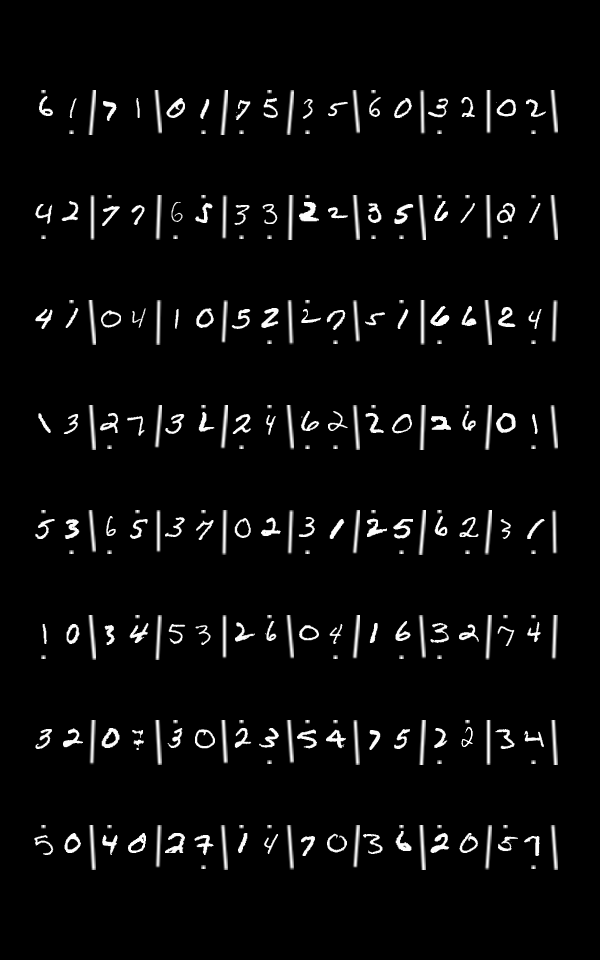 6 1 | 7 1 | 0 1 | 7 5 | 3 5 | 6 0 | 3 2 | 0 2 |
4 2 | 7 7 | 6 5 | 3 3 | 2 2 | 3 5 | 6 1 | 2 1 |
4 1 | 0 4 | 1 0 | 5 2 | 2 7 | 5 1 | 6 6 | 2 4 |
1 3 | 2 7 | 3 2 | 2 4 | 6 2 | 2 0 | 2 6 | 0 1 |
5 3 | 6 5 | 3 7 | 0 2 | 3 1 | 2 5 | 6 2 | 3 1 |
1 0 | 3 4 | 5 3 | 2 6 | 0 4 | 1 6 | 3 2 | 7 4 |
3 2 | 0 7 | 3 0 | 2 3 | 5 4 | 7 5 | 2 2 | 3 4 |
5 0 | 4 0 | 2 7 | 1 4 | 7 0 | 3 6 | 2 0 | 5 7 |